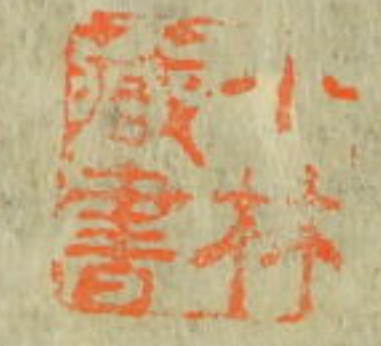 小林
藏書